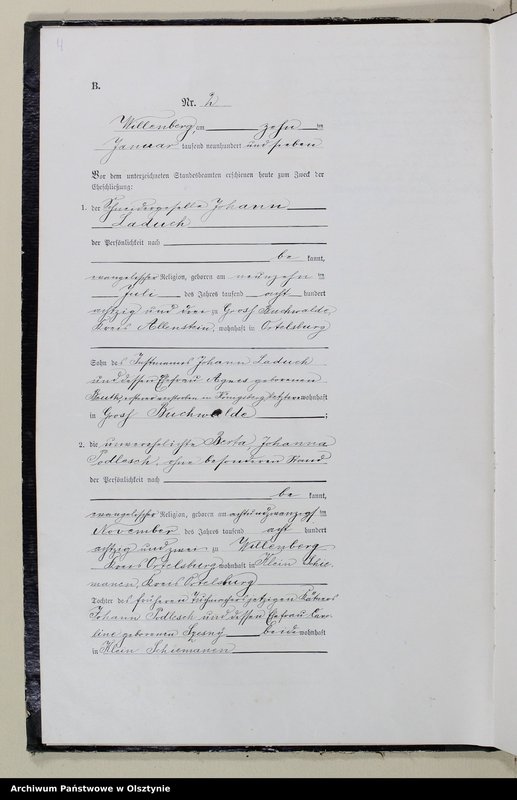 4
B.
Nr. 2
Willenberg, am zehn ten
Januar tausend neunhundert und sieben
Vor dem unterzeichneten Standesbeamten erschienen heute zum Zweck der
Eheschließung:
1. der Schneidergeselle Johann
Laduch
der Persönlichkeit nach
be kannt,
evangelischer Religion, geboren am neunzehn ten
Juli des Jahres tausend acht hundert
achtzig und drei zu Groß Buchwalde,
Kreis Allenstein, wohnhaft in Ortelsburg
Sohn des Instmannes Johann Laduch
und dessen Ehefrau Agnes geborenen
ersterer verstorben in Königsberg letztere wohnhaft
in Groß Buchwalde ;
2. die unverehelichte Berta Johanna
Podlesch, ohne besonderen Stand
der Persönlichkeit nach
be kannt,
evangelischer Religion, geboren am achtundzwanzigs ten
November des Jahres tausend acht hundert
achtzig und zwei zu Willenberg
Kreis Ortelsburg wohnhaft in Klein Schie-
manen, Kreis Ortelsburg
Tochter des früheren jetzigen Kätners
Johann Podlesch und dessen Ehefrau Karo-
line geborenen Szesny beide wohnhaft
in Klein Schiemanen
Archiwum Państwowe w Olsztynie